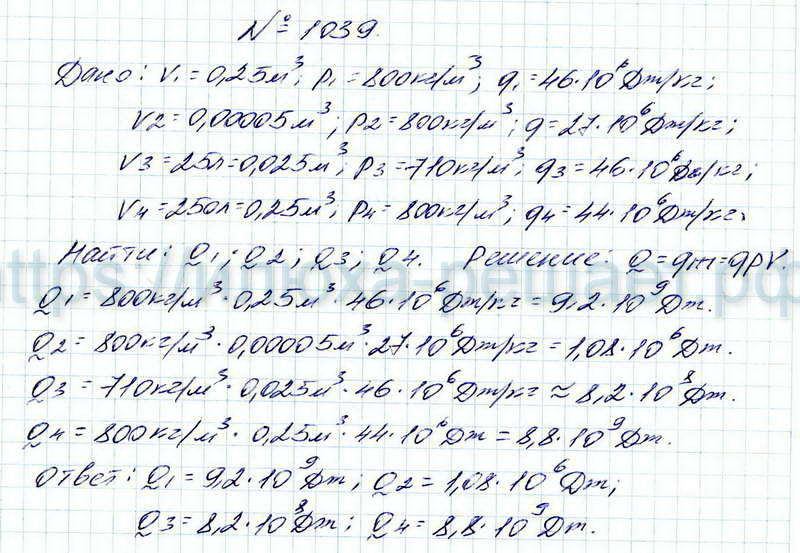 № 1039.
Дано: V1 = 0,25м³; ρ1 = 800кг/м³; q1 = 46·10⁶Дж/кг;
V2 = 0,00005м³; ρ2 = 800кг/м³; q = 27·10⁶Дж/кг;
V3 = 25л = 0,025м³; ρ3 = 710кг/м³; q3 = 46·10⁶Дж/кг;
V4 = 250л = 0,25м³; ρ4 = 800кг/м³; q4 = 44·10⁶Дж/кг.
Найти: Q1; Q2; Q3; Q4. Решение: Q = qm = qρV.
https://илюха-решает.рф
Q1 = 800кг/м³·0,25м³·46·10⁶Дж/кг = 9,2·10⁹Дж.
Q2 = 800кг/м³·0,00005м³·27·10⁶Дж/кг = 1,08·10⁶Дж.
Q3 = 710кг/м³·0,025м³·46·10⁶Дж/кг ≈ 8,2·10⁸Дж.
Q4 = 800кг/м³·0,25м³·44·10⁶Дж = 8,8·10⁹Дж.
Ответ: Q1 = 9,2·10⁹Дж; Q2 = 1,08·10⁶Дж;
Q3 = 8,2·10⁸Дж; Q4 = 8,8·10⁹Дж.